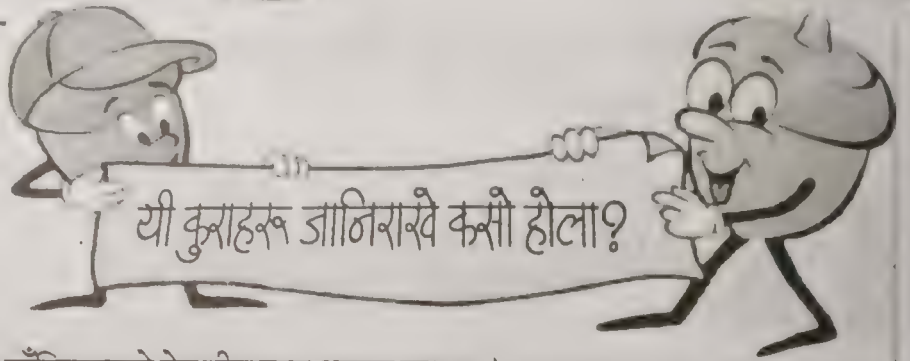 यी कुराहरू जानिराखे कसो होला?